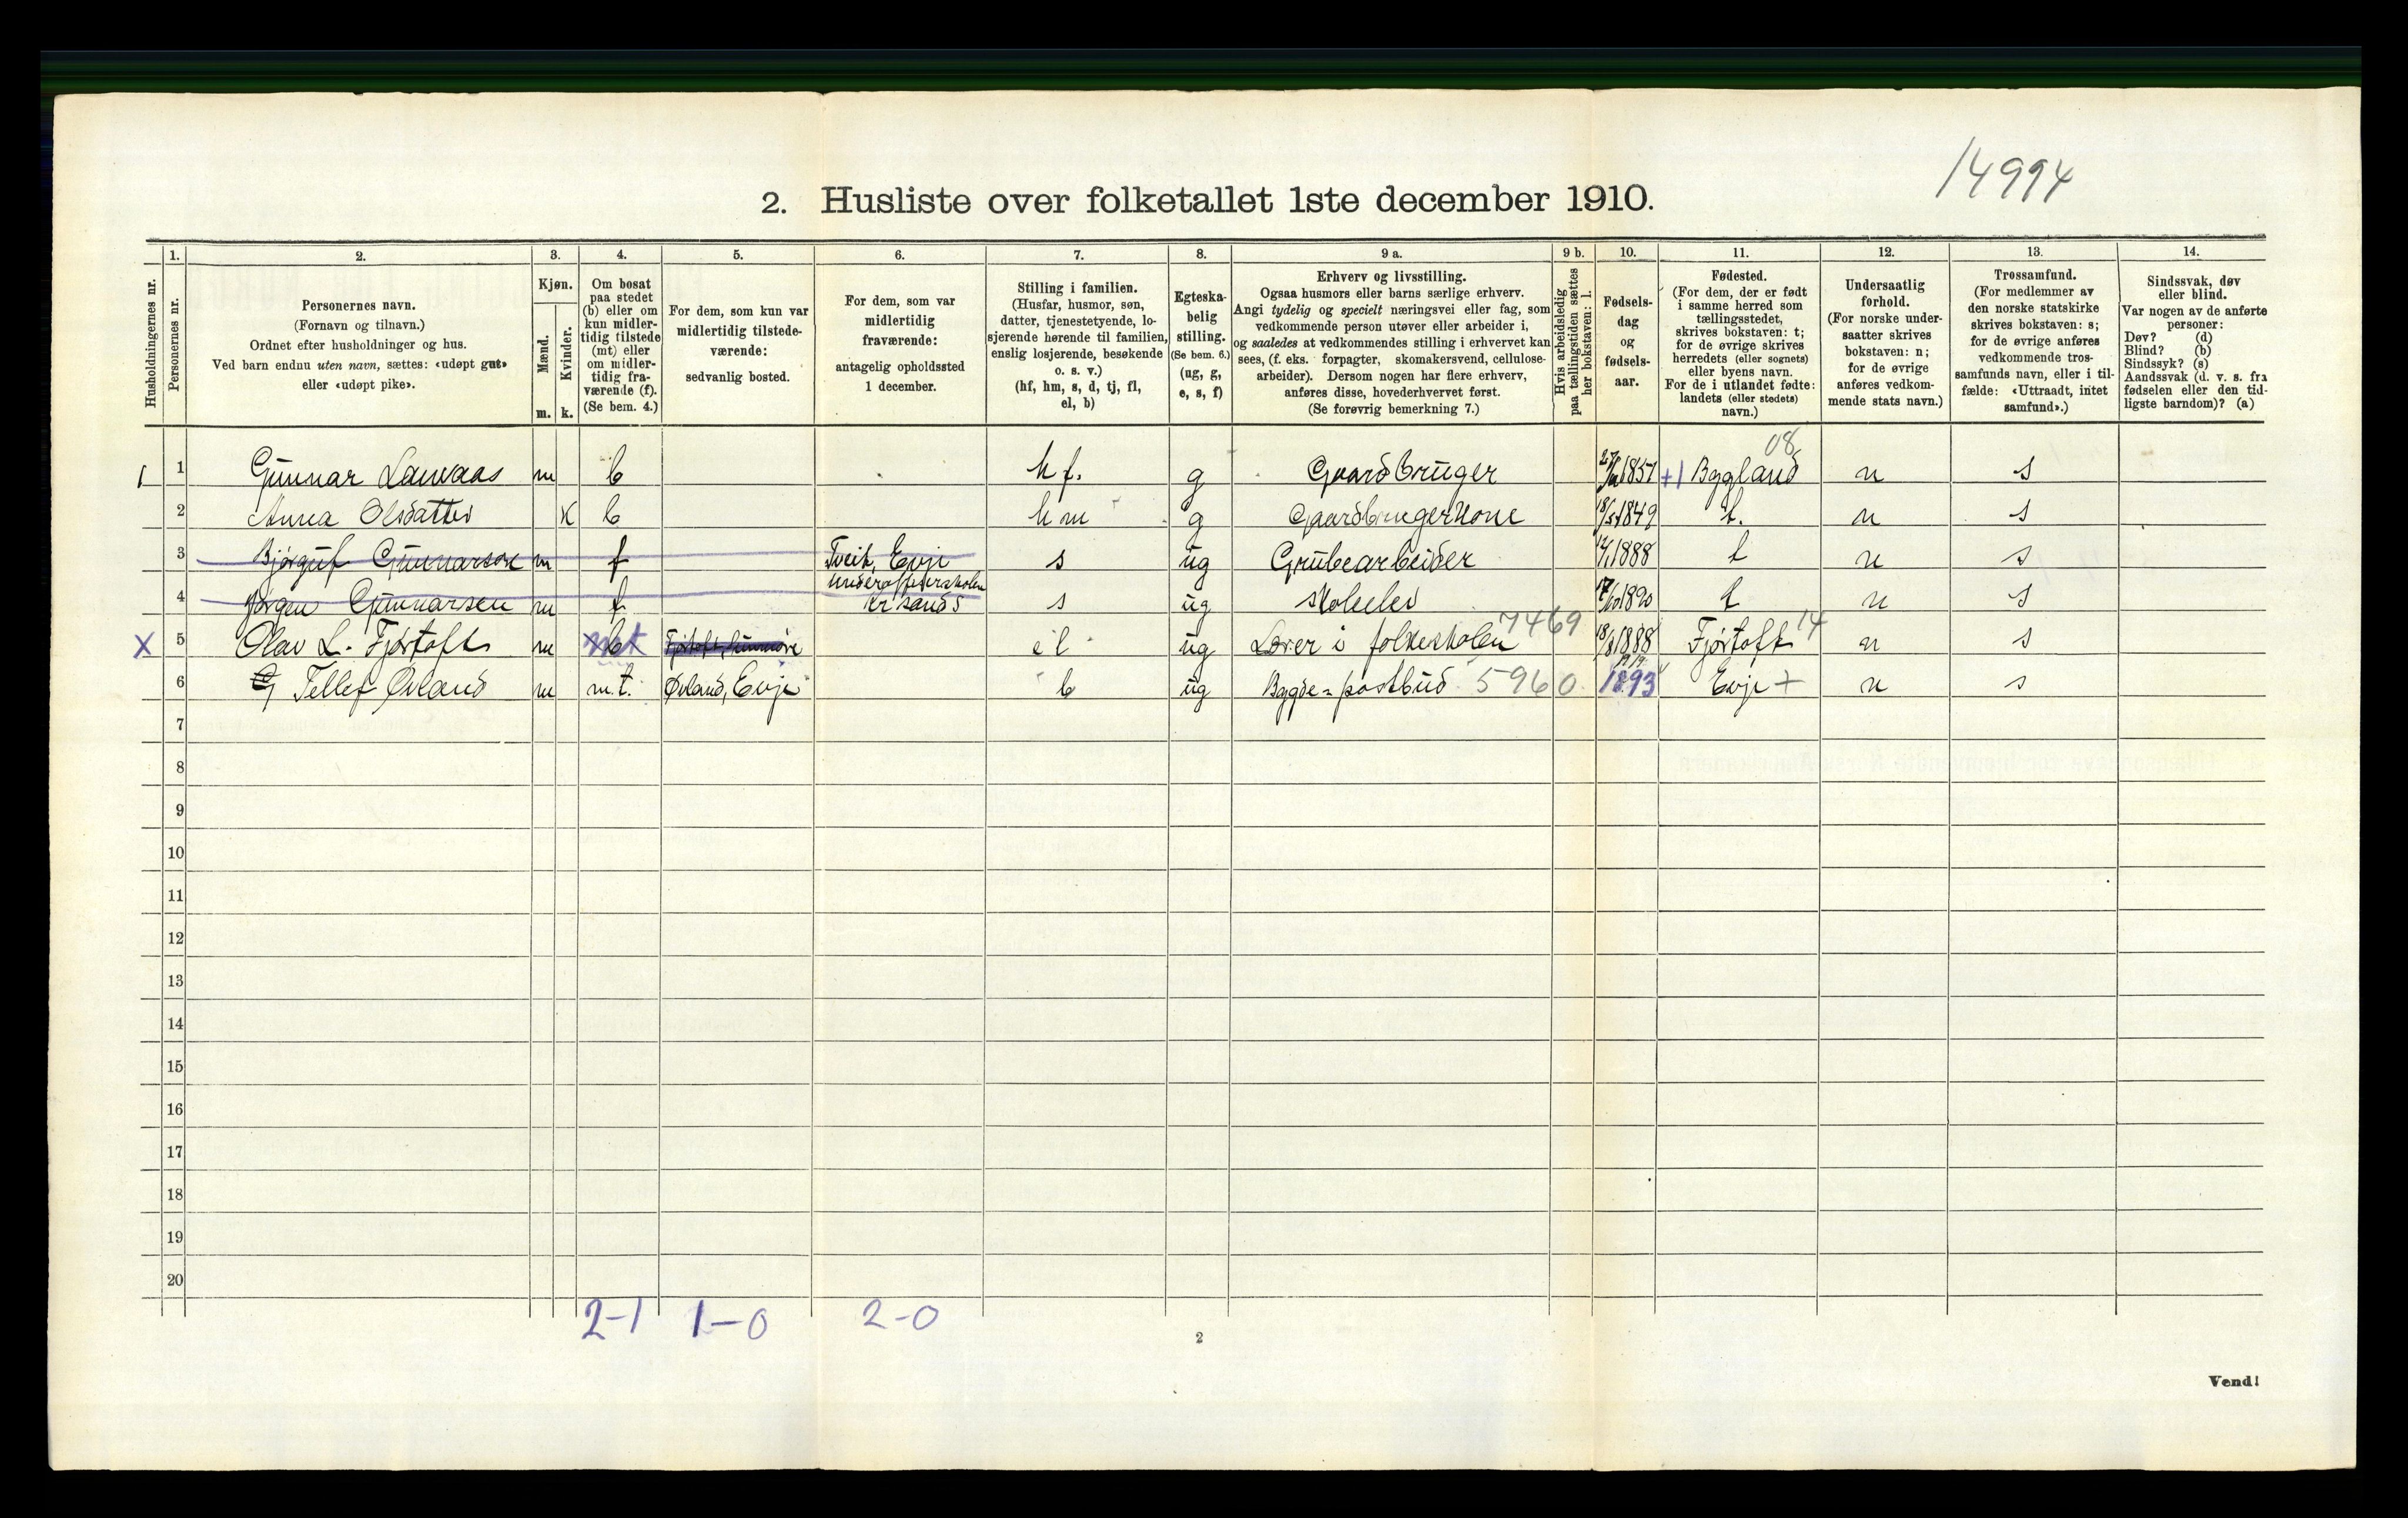 14994
2. Husliste over folketallet 1ste december 1910.
Husholdningernes nr.
1. Personernes nr.
2. Personernes navn. (Fornavn og tilnavn.) Ordnet efter husholdninger og hus. Ved barn endnu uten navn, sættes: «udøpt gut» eller «udøpt pike».
3. Kjøn. Mænd. m. Kvinder. k.
4. Om bosat paa stedet (b) eller om kun midlertidig tilstede (mt) eller om midlertidig fraværende (f). (Se bem. 4.)
5. For dem, som kun var midlertidig tilstedeværende: sedvanlig bosted.
6. For dem, som var midlertidig fraværende: antagelig opholdssted 1 december.
7. Stilling i familien. (Husfar, husmor, søn, datter, tjenestetyende, losjerende hørende til familien, enslig losjerende, besøkende o. s. v.) (hf, hm, s, d, tj, fl, el, b)
8. Egteskabelig stilling. (Se bem. 6.) (ug, g, e, s, f)
9 a. Erhverv og livsstilling. Ogsaa husmors eller barns særlige erhverv. Angi tydelig og specielt næringsvei eller fag, som vedkommende person utøver eller arbeider i, og saaledes at vedkommendes stilling i erhvervet kan sees, (f. eks. forpagter, skomakersvend, cellulosearbeider). Dersom nogen har flere erhverv, anføres disse, hovederhvervet først. (Se forøvrig bemerkning 7.)
9 b. Hvis arbeidsledig paa tællingstiden sættes her bokstaven: l.
10. Fødselsdag og fødselsaar.
11. Fødested. (For dem, der er født i samme herred som tællingsstedet, skrives bokstaven: t; for de øvrige skrives herredets (eller sognets) eller byens navn. For de i utlandet fødte: landets (eller stedets) navn.)
12. Undersaatlig forhold. (For norske undersaatter skrives bokstaven: n; for de øvrige anføres vedkommende stats navn.)
13. Trossamfund. (For medlemmer av den norske statskirke skrives bokstaven: s; for de øvrige anføres vedkommende trossamfunds navn, eller i tilfælde: «Uttraadt, intet samfund».)
14. Sindssvak, døv eller blind. Var nogen av de anførte personer: Døv? (d) Blind? (b) Sindssyk? (s) Aandssvak (d. v. s. fra fødselen eller den tidligste barndom)? (a)
08
1 1 Gunnar Lauvaas m b hf. g Gaardbruger 1851 +1 Bygland n s
2 Anna Olsdatter k b hm g Gaardbrugerkone 18/5 1849 t. n s
3 Bjørguf Gunnarson m f Tveit, Evje s ug Grubearbeider 1888 t n s
4 Jørgen Gunnarsen m f Underofficersskolen Kr.sands s ug Skoleelev 17/10 1890 t n s
X 5 Olav L. Fjørtoft m b Fjørtoft, Sunmøre el ug Lærer i folkeskolen 7469 18/8 1888 Fjørtoft 14 n s
6 Tellef Øvland m m.t. Øvland, Evje b ug Bygde=postbud 5960 1893 Evje + n s
7
8
9
10
11
12
13
14
15
16
17
18
19
20
2-1 1-0 2-0
2
Vend!